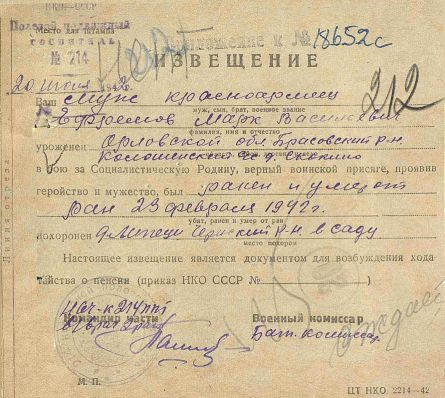 НКО—СССР
Полевой подвижный
Место для штампа
ГОСПИТАЛЬ
№ 214
Приложение к № 18652с
20 июня 1942
ИЗВЕЩЕНИЕ
212
Ваш муж красноармеец
муж, сын, брат, военное звание
Ефремов Марк Васильевич
фамилия, имя и отчество
уроженец Орловской обл. Брасовский р-н
в бою за Социалистическую Родину, верный воинской присяге, проявив
геройство и мужество, был ранен и умер от
ран 23 февраля 1942 г.
убит, ранен и умер от ран
похоронен Чернский р-н в саду
место похорон
Настоящее извещение является документом для возбуждения хода-
тайства о пенсии (приказ НКО СССР № )
Нач-к 214 ппг
Командир части
Военный комиссар
Бат. комиссар
М. П.
ЦТ НКО. 2214—42
Линия отреза